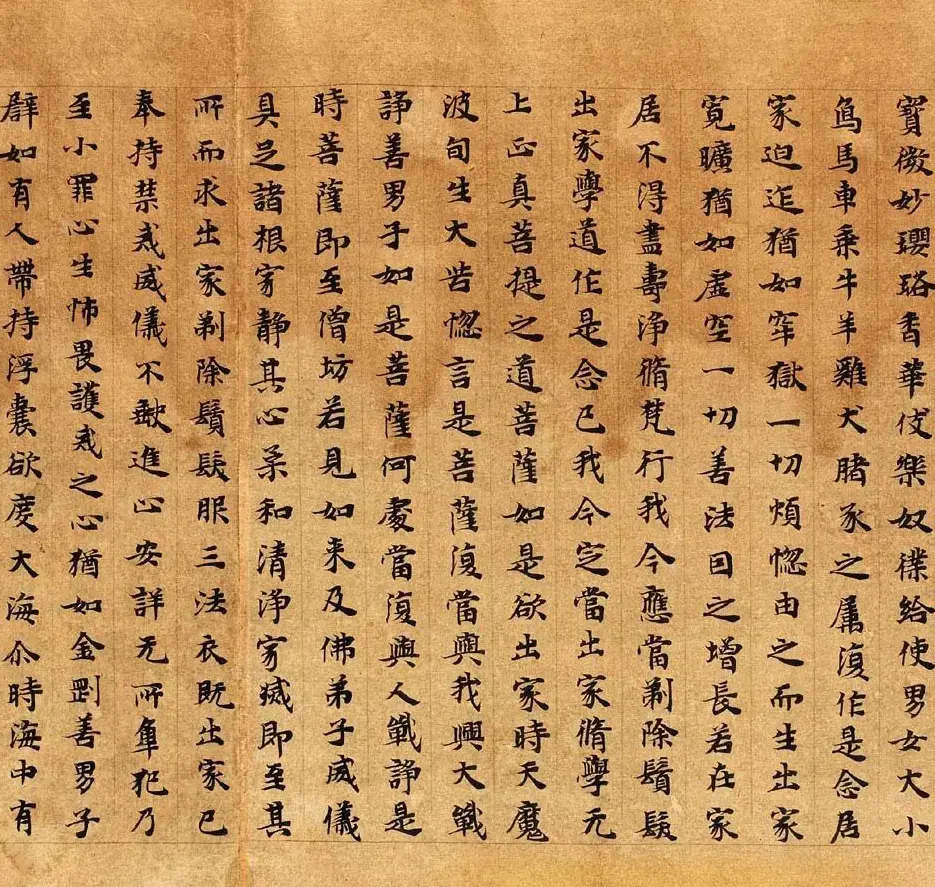 寳微妙瓔珞香華伎樂奴僕給使男女大小
鳥馬車乘牛羊雞犬腤豕之属復作是念居
家迫迮猶如窂獄一切煩惚由之而生出家
寛曠猶如虚空一切善法因之增長若在家
居不得盡壽浄脩梵行我今應當剃除鬚髮
出家學道作是念已我今定當出家脩學无
上正真菩提之道菩薩如是欲出家時天魔
波旬生大苦惚言是菩薩復當與我興大戰
諍善男子如是菩薩何處當復與人戰諍是
時菩薩即至僧坊若見如来及佛弟子威儀
具足諸根㝡静其心柔和清浄㝡滅即至其
所而求出家剃除鬚髮服三法衣既出家已
奉持禁戒威儀不𡙇進止安詳无所𠌸犯乃
至小罪心生怖畏護戒之心猶如金剛善男子
辟如有人帶持浮囊欲度大海尒時海中有